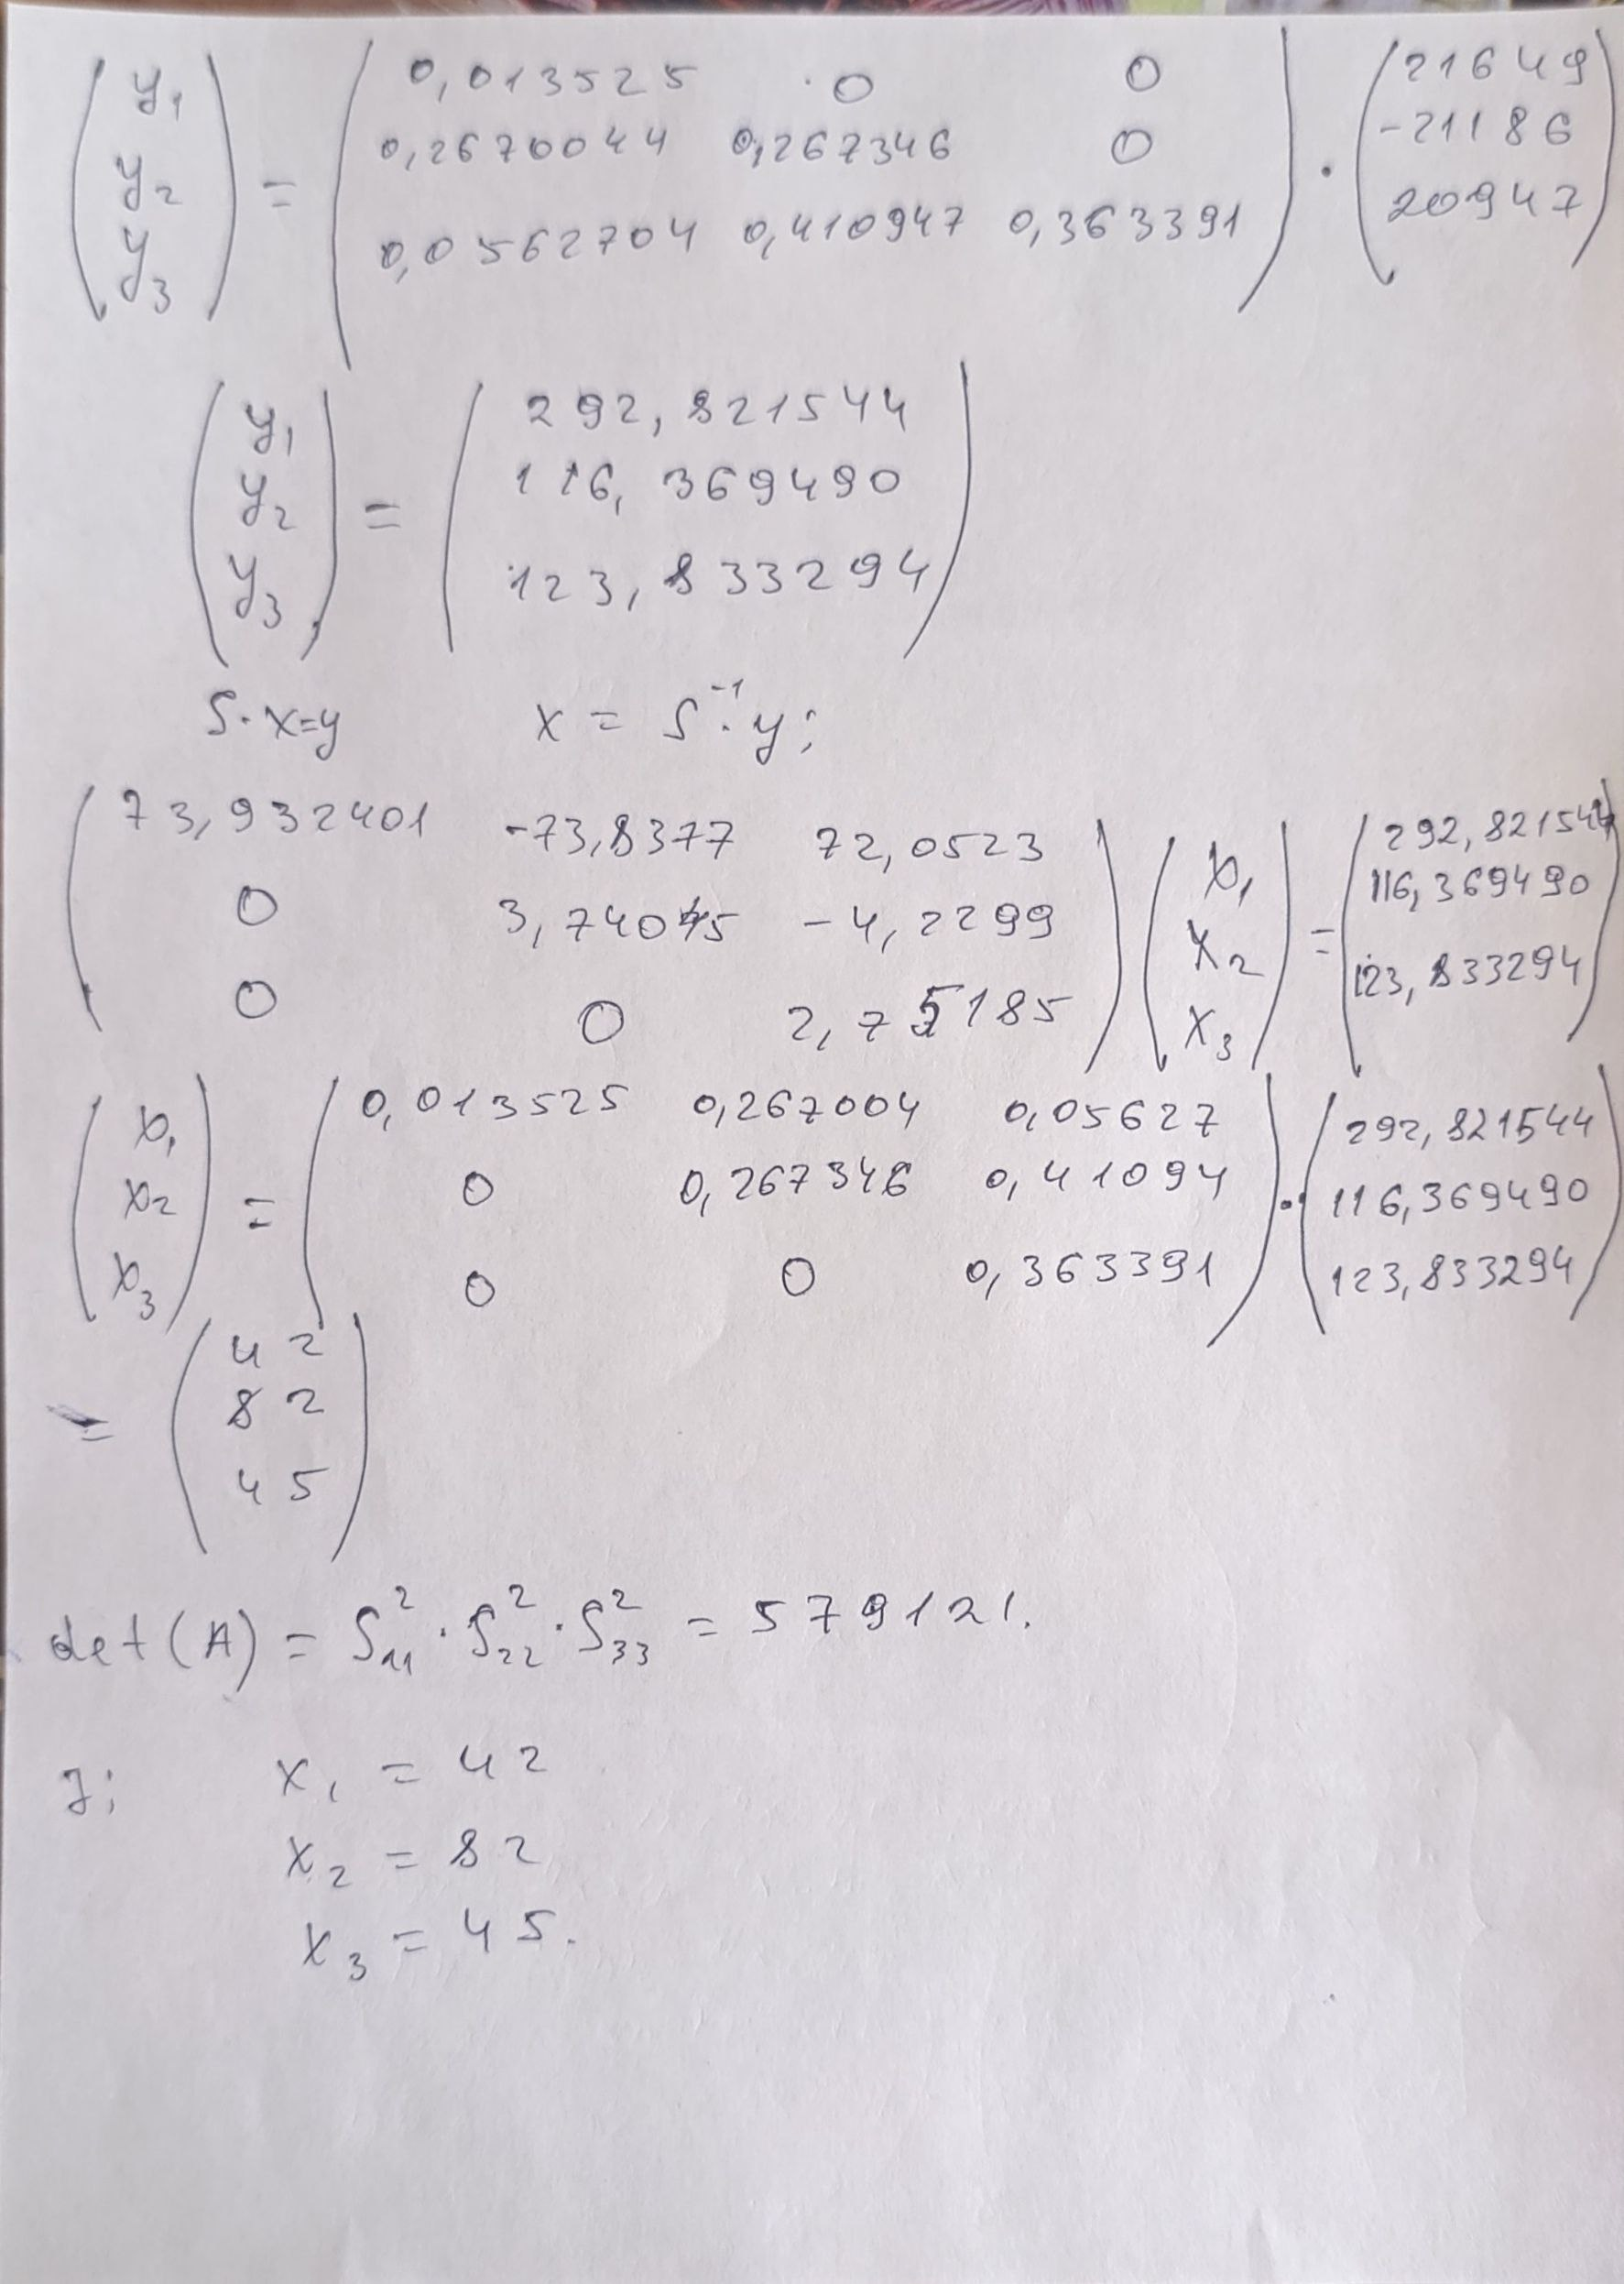 (y₁ y₂ y₃) = (0,013525 0 0; 0,2670044 0,267346 0; 0,0562704 0,410947 0,363391) · (21649; -21186; 20947)
(y₁ y₂ y₃) = (292,821544; 116,369490; 123,833294)
S·x=y x = S⁻¹·y;
(73,932401 -73,8377 72,0523; 0 3,74045 -4,2299; 0 0 2,75185) (x₁ x₂ x₃) = (292,821544; 116,369490; 123,833294)
(x₁ x₂ x₃) = (0,013525 0,267004 0,05627; 0 0,267346 0,41094; 0 0 0,363391) · (292,821544; 116,369490; 123,833294)
= (42; 82; 45)
det(A) = S₁₁² · S₂₂² · S₃₃² = 579121.
x₁ = 42
x₂ = 82
x₃ = 45.